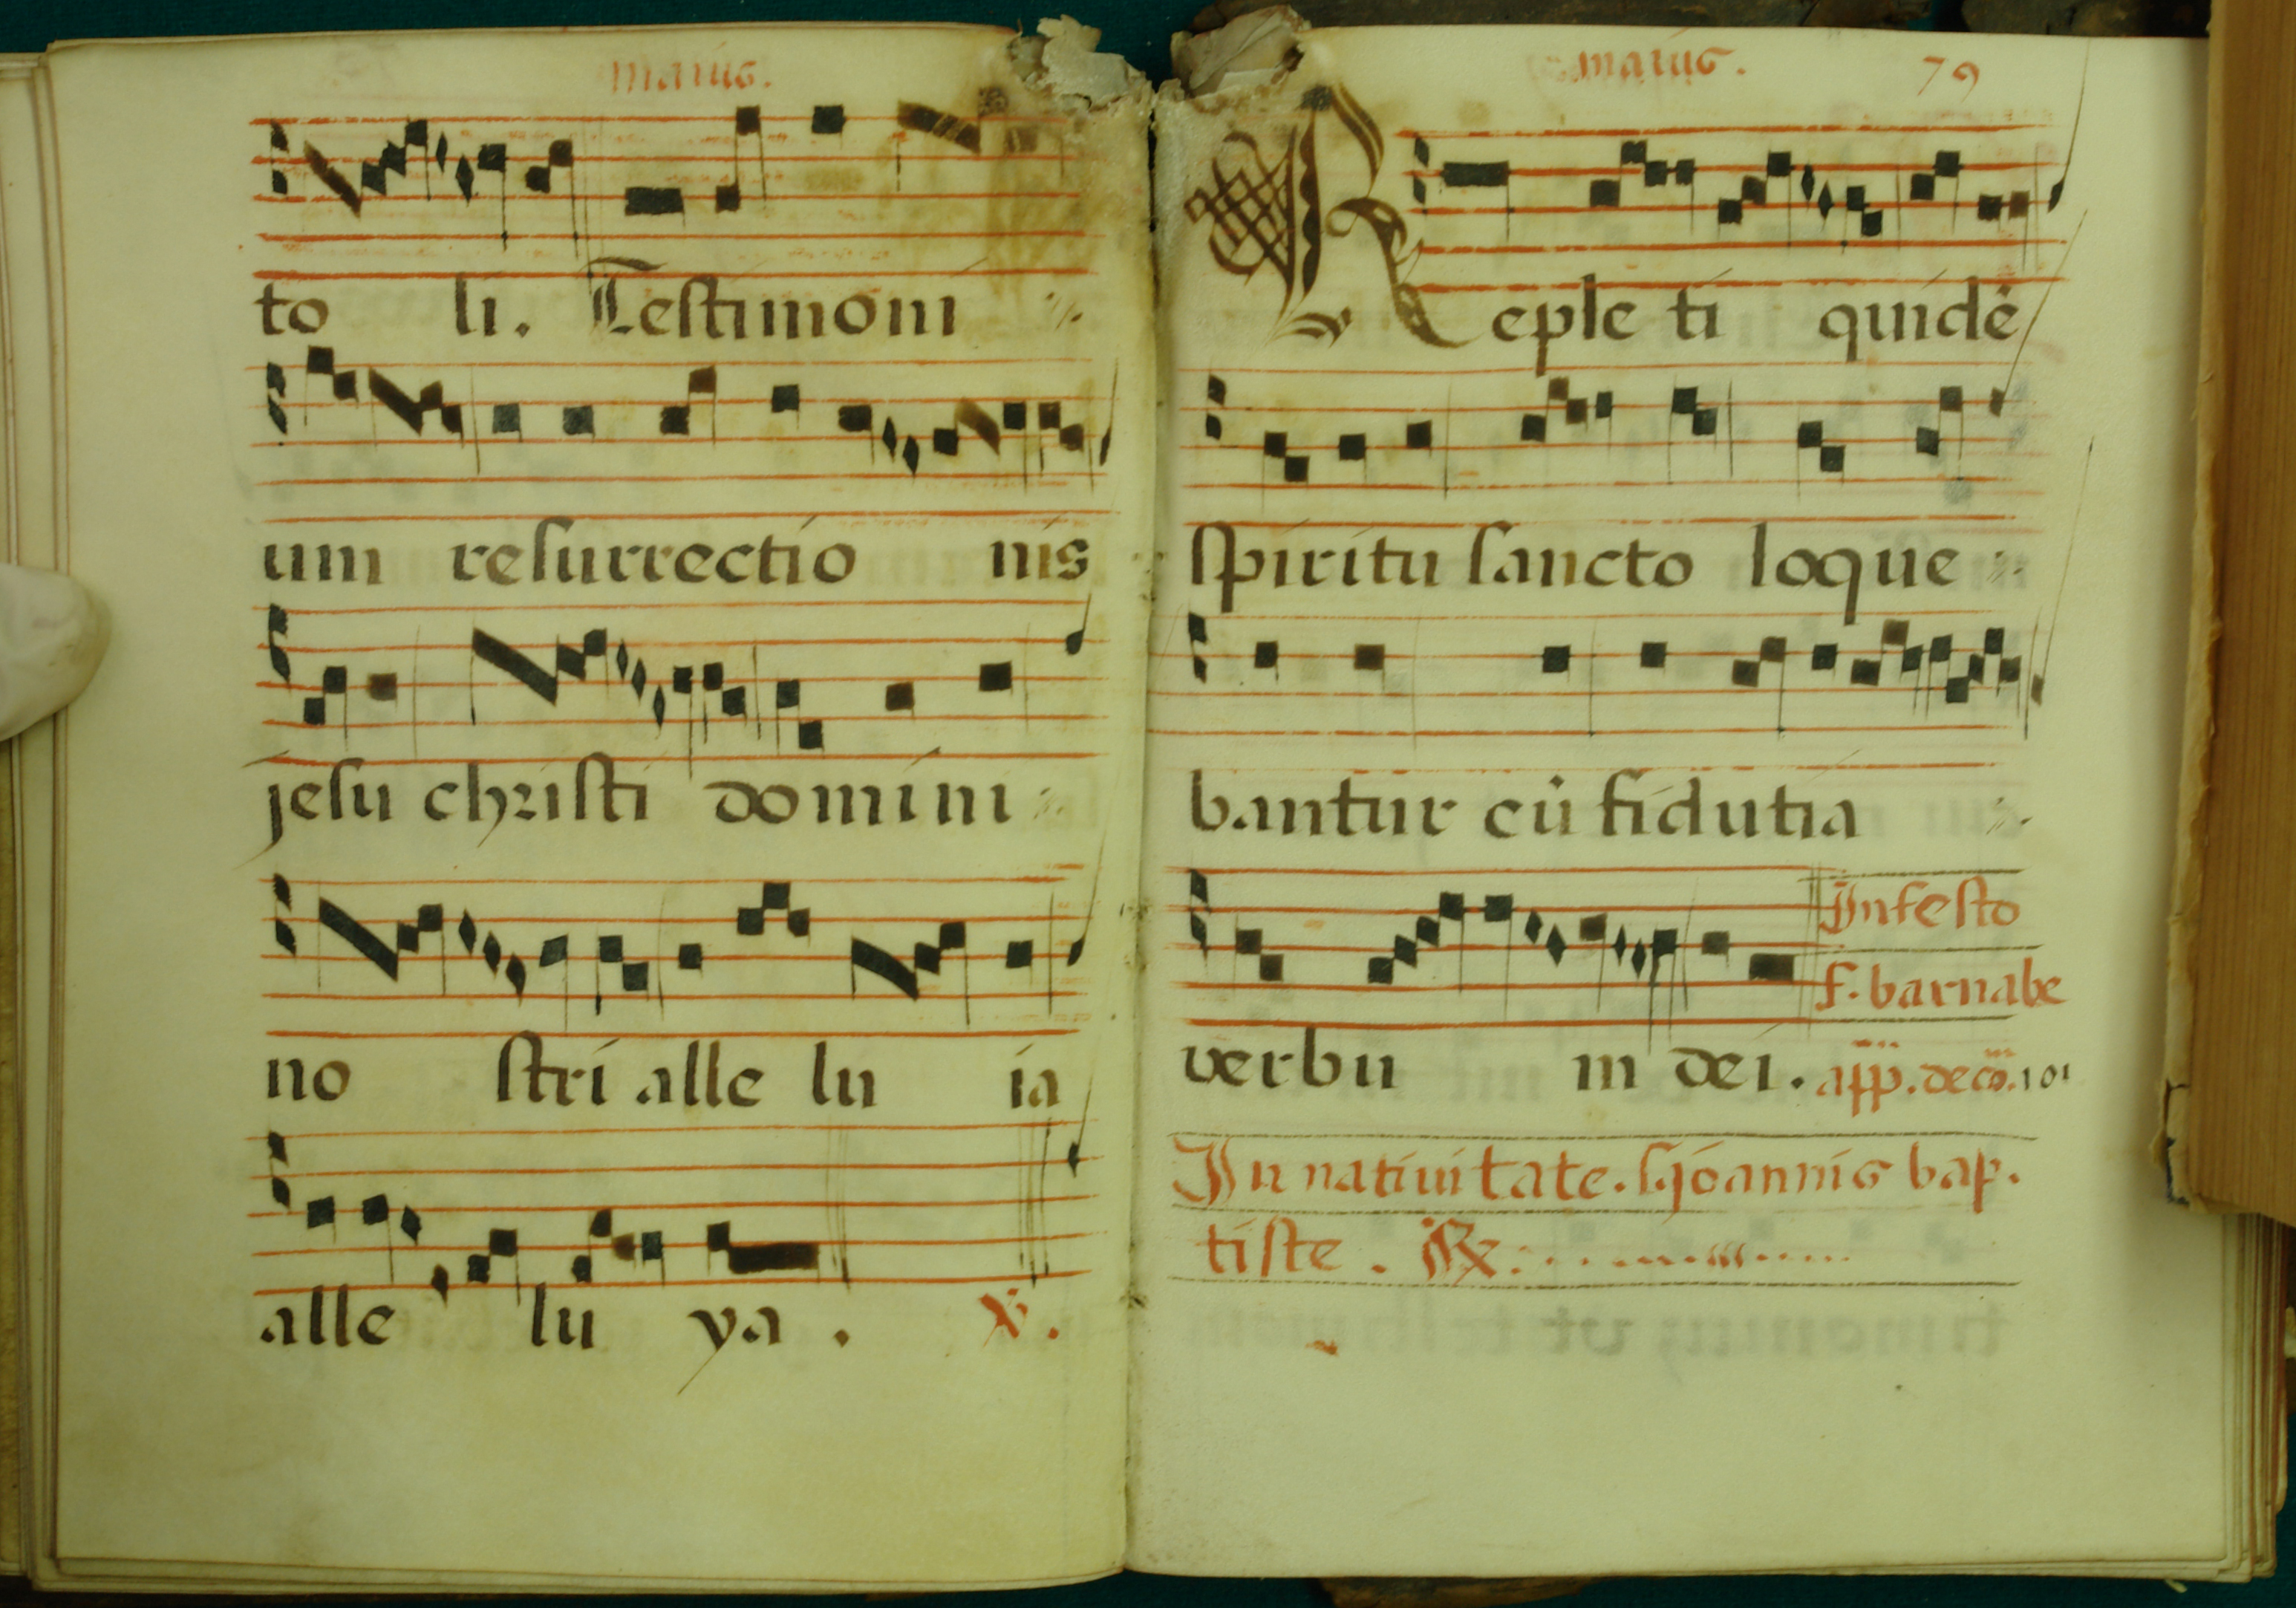 maius.
to li. Testimoni
um resurrectio nis
jesu christi domini
no stri alle lu ia
alle lu ya . ℣.
maius. 79
Reple ti quidē
spiritu sancto loque
bantur cū fidutia
verbu m dei.
In festo
s. barnabe
app. de cō. 101
In natiuitate. s. joannis bap.
tiste . ℟.